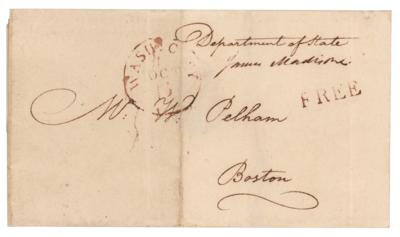 Department of State
James Madison
WASH. C
OC
FREE
Mr. W. Pelham
Boston